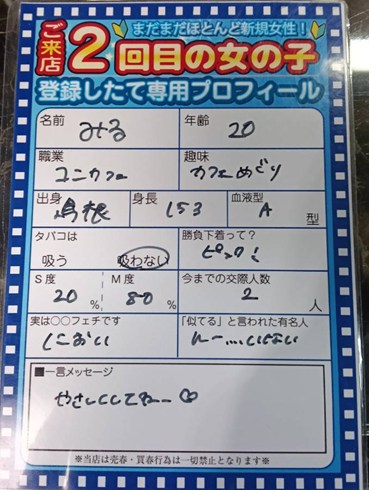 まだまだほとんど新規女性!
ご来店2回目の女の子
登録したて専用プロフィール
名前 みする
年齢 20
職業 コンカフェ
趣味 カフェめぐり
出身 島根
身長 153
血液型 A 型
タバコは 吸う 吸わない
勝負下着って? ピンク!
S度 20 %
M度 80 %
今までの交際人数 2 人
実は○○フェチです におい
「似てる」と言われた有名人 んー……いない
■一言メッセージ
やさしくしてねー♡
※当店は売春・買春行為は一切禁止となります※